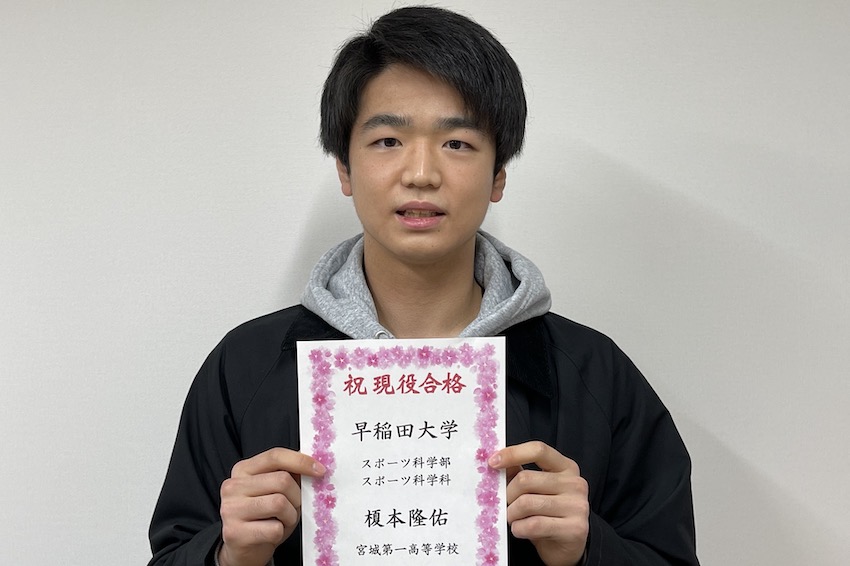 祝 現役合格
早稲田大学
スポーツ科学部
スポーツ科学科
榎本隆佑
宮城第一高等学校